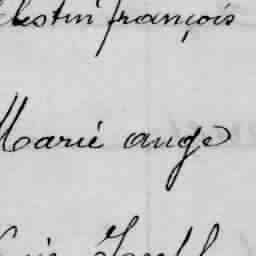 lestin françois
Marie ange